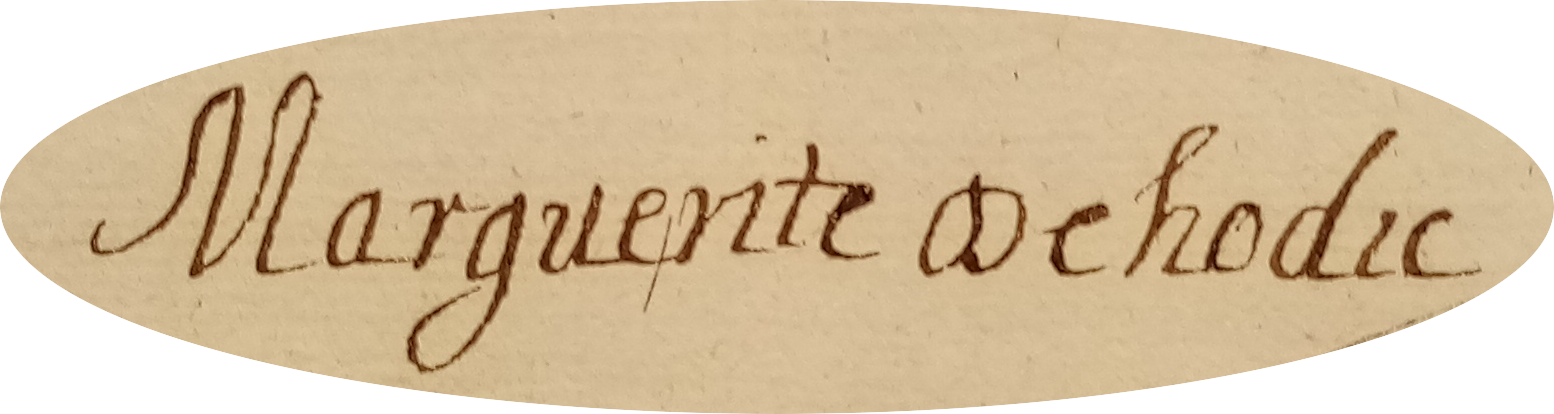 Marguerite De hodic